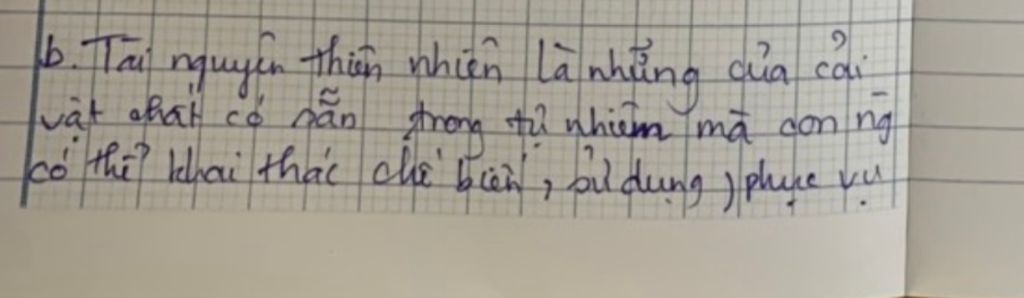 b. Tài nguyên thiên nhiên là những của cải
vật chất có sẵn trong tự nhiêm mà con ng
có thể khai thác chế biến, sử dụng, phục vụ